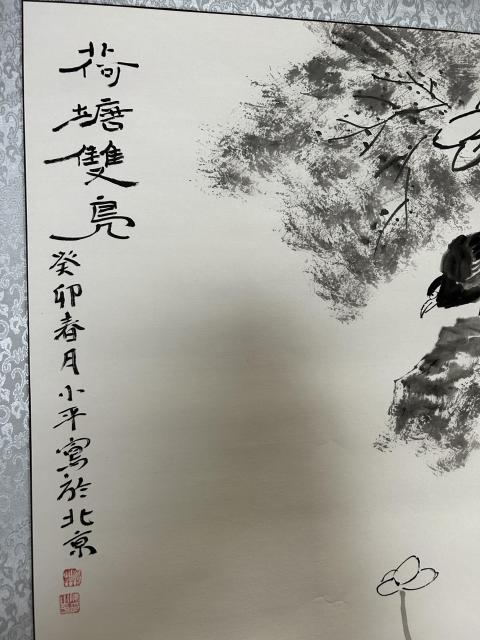 荷塘雙亮
癸卯春月小平寫於北京